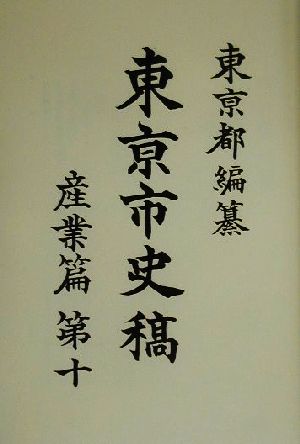 東亰都編纂
東亰市史稿
産業篇第十